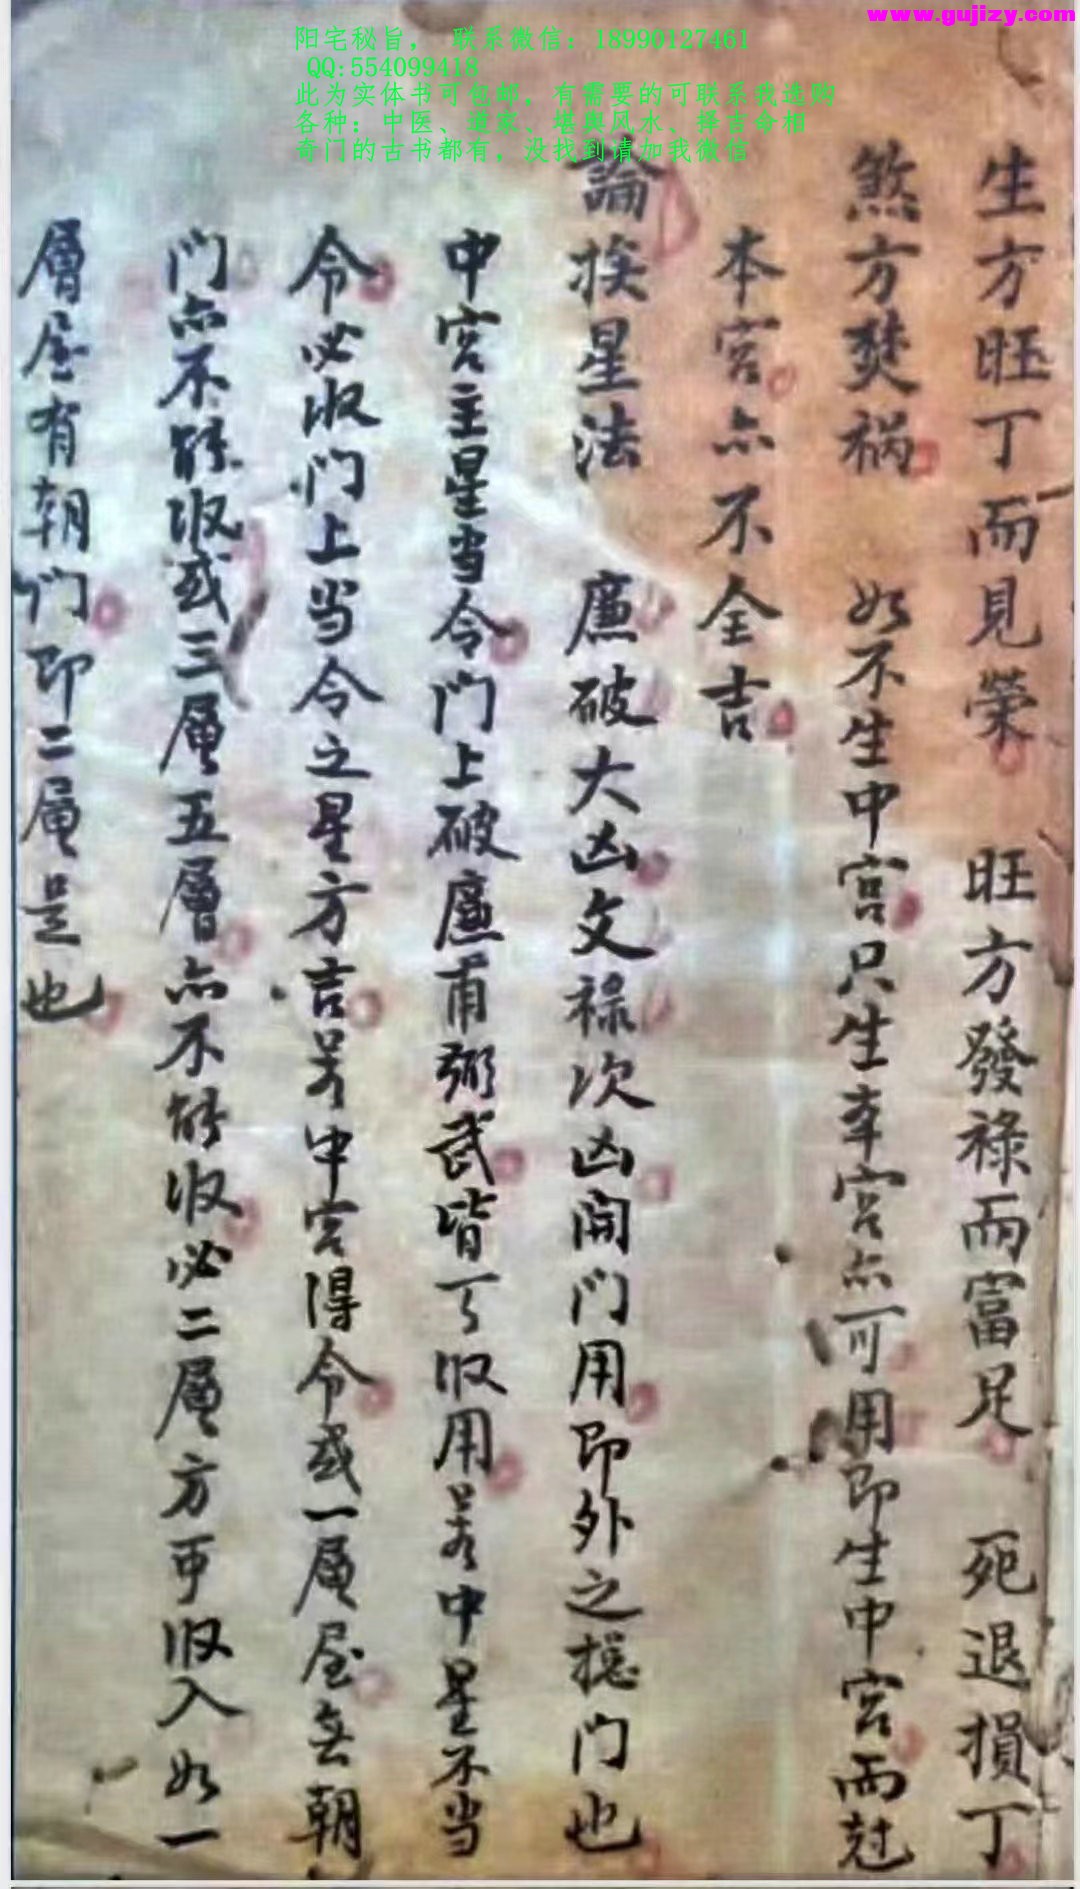 www.gujizy.com
阳宅秘旨， 联系微信：18990127461
QQ:554099418
此为实体书可包邮，有需要的可联系我选购
各种：中医、道家、堪舆风水、择吉命相
奇门的古书都有，没找到请加我微信
生方旺丁而見榮 旺方發祿而富足 死退損丁
煞方獎禍 如不生中宮只生本宮亦可用即生中宮而尅
本宮亦不全吉
論挨星法 廉破大凶文祿次凶開門用即外之摠门也
中宮主星当令门上破廉甫弼武皆丁收用若中星不当
令必收门上当令之星方言若中宮得令或一層屋無朝
门亦不能收或三層五層亦不能收必二層方可收入如一
層屋有朝门即二層是也